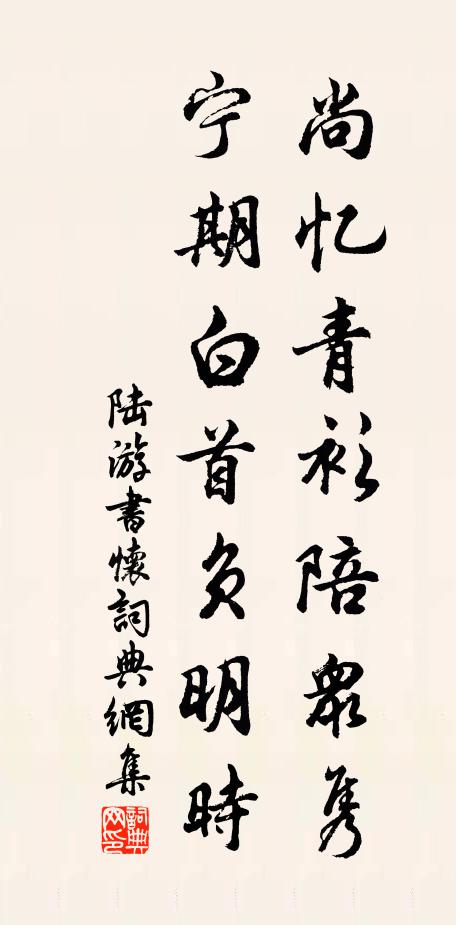 尚忆青衫陪眾隽
宁期白首负明時
陆游書懷詞典網集
詞典網印